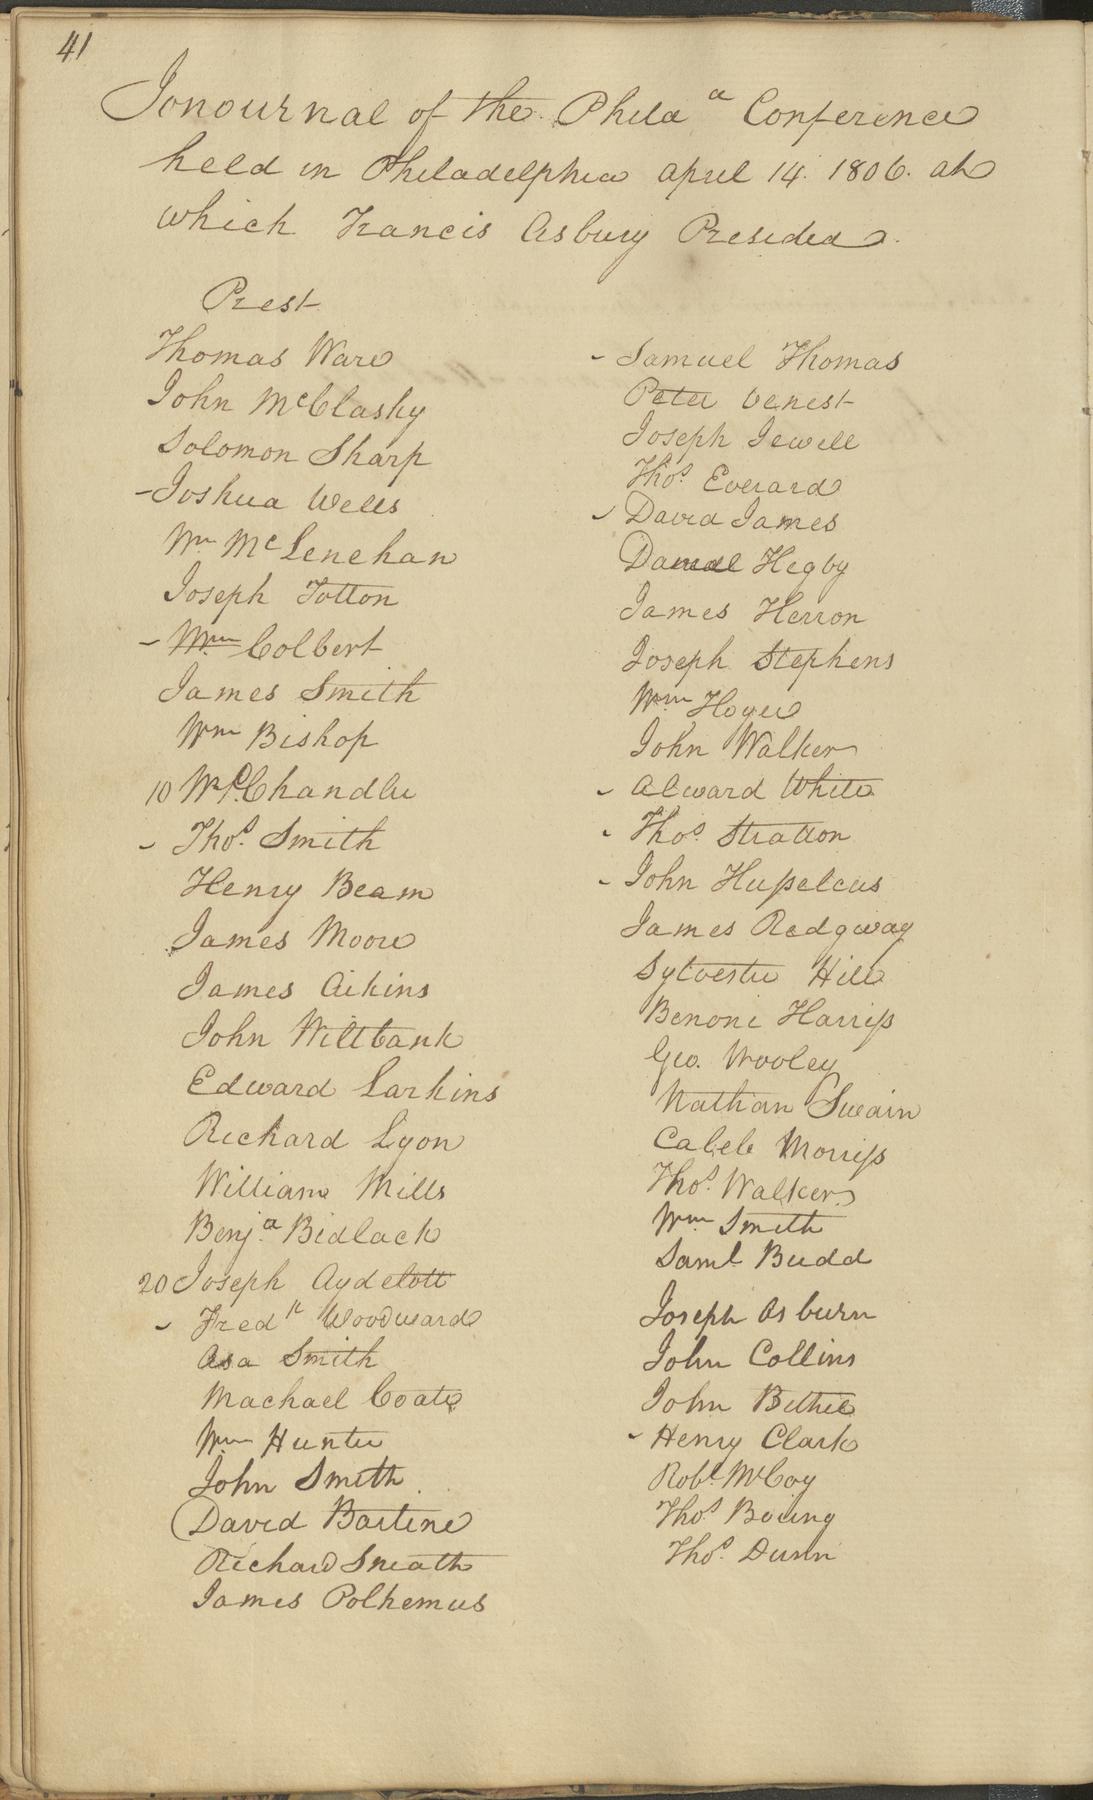 41
Jonournal of the Phila^a Conference
held in Philadelphia april 14. 1806. at
which Francis Asbury Presided.
Prest
Thomas Ware
John McClasky
Solomon Sharp
- Joshua Wells
Wm McLenehan
Joseph Totton
- Wm Colbert
James Smith
Wm Bishop
10 Wm P. Chandler
- Thos. Smith
Henry Beam
James Moore
James Aikins
John Wiltbank
Edward Larkins
Richard Lyon
William Mills
Benj.a Bidlack
20 Joseph Aydelott
- Fredk Woodward
Asa Smith
Machael Coate
Wm Hunter
John Smith
(David Bartine
Richard Sneath
James Polhemus
- Samuel Thomas
Peter Venest
Joseph Jewell
Thos. Everard
- David James
Daniel Hegby
James Herron
Joseph Stephens
Wm Hoyer
John Walker
- Alward White
- Thos Stratton
- John
James Redgway
Sylvester Hill
Benoni Harriss
Geo. Wooley
Nathan Swain
Caleb Morriss
Thos. Walker
Wm Smith
Saml Budd
Joseph Osburn
John Collins
John Bethel
- Henry Clark
Robt McCoy
Thos Boring
Thos. Dunn